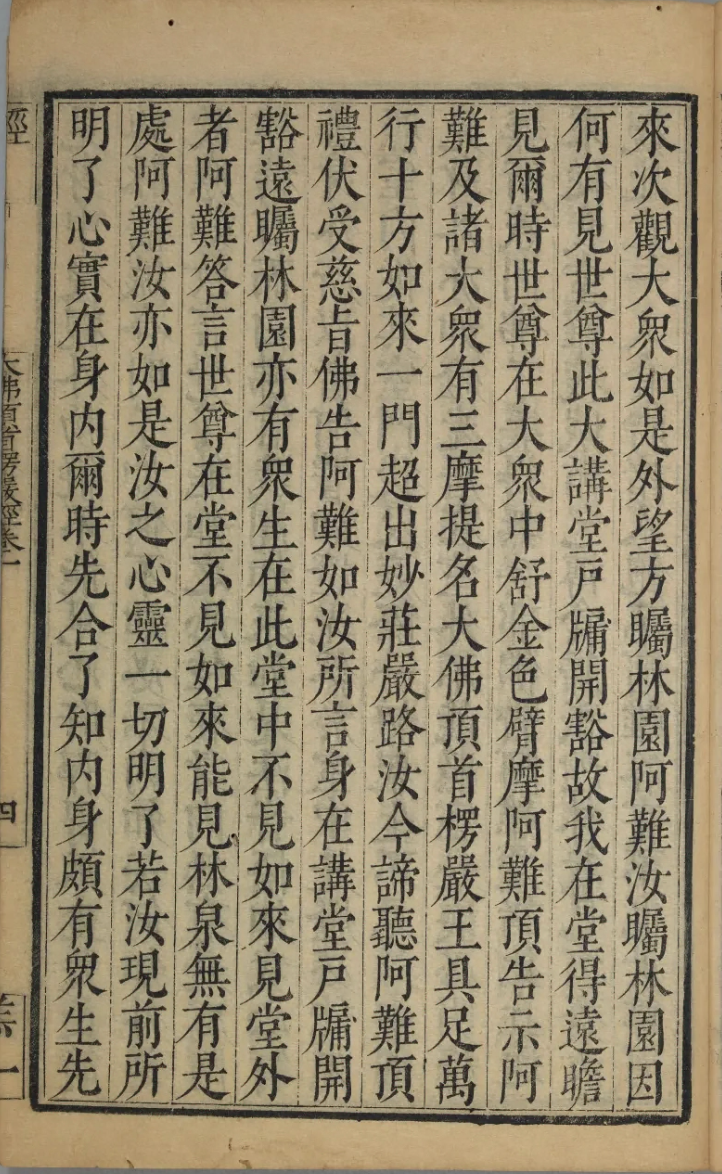 來次觀大衆如是外望方矚林園阿難汝矚林園因
何有見世尊此大講堂戸牖開豁故我在堂得遠瞻
見爾時世尊在大衆中舒金色臂摩阿難頂告示阿
難及諸大衆有三摩提名大佛頂首楞嚴王具足萬
行十方如來一門超出妙莊嚴路汝今諦聽阿難頂
禮伏受慈旨佛告阿難如汝所言身在講堂戸牖開
豁遠矚林園亦有衆生在此堂中不見如來見堂外
者阿難答言世尊在堂不見如來能見林泉無有是
處阿難汝亦如是汝之心靈一切明了若汝現前所
明了心實在身内爾時先合了知内身頗有衆生先
經
大佛頂首楞嚴經卷一
四